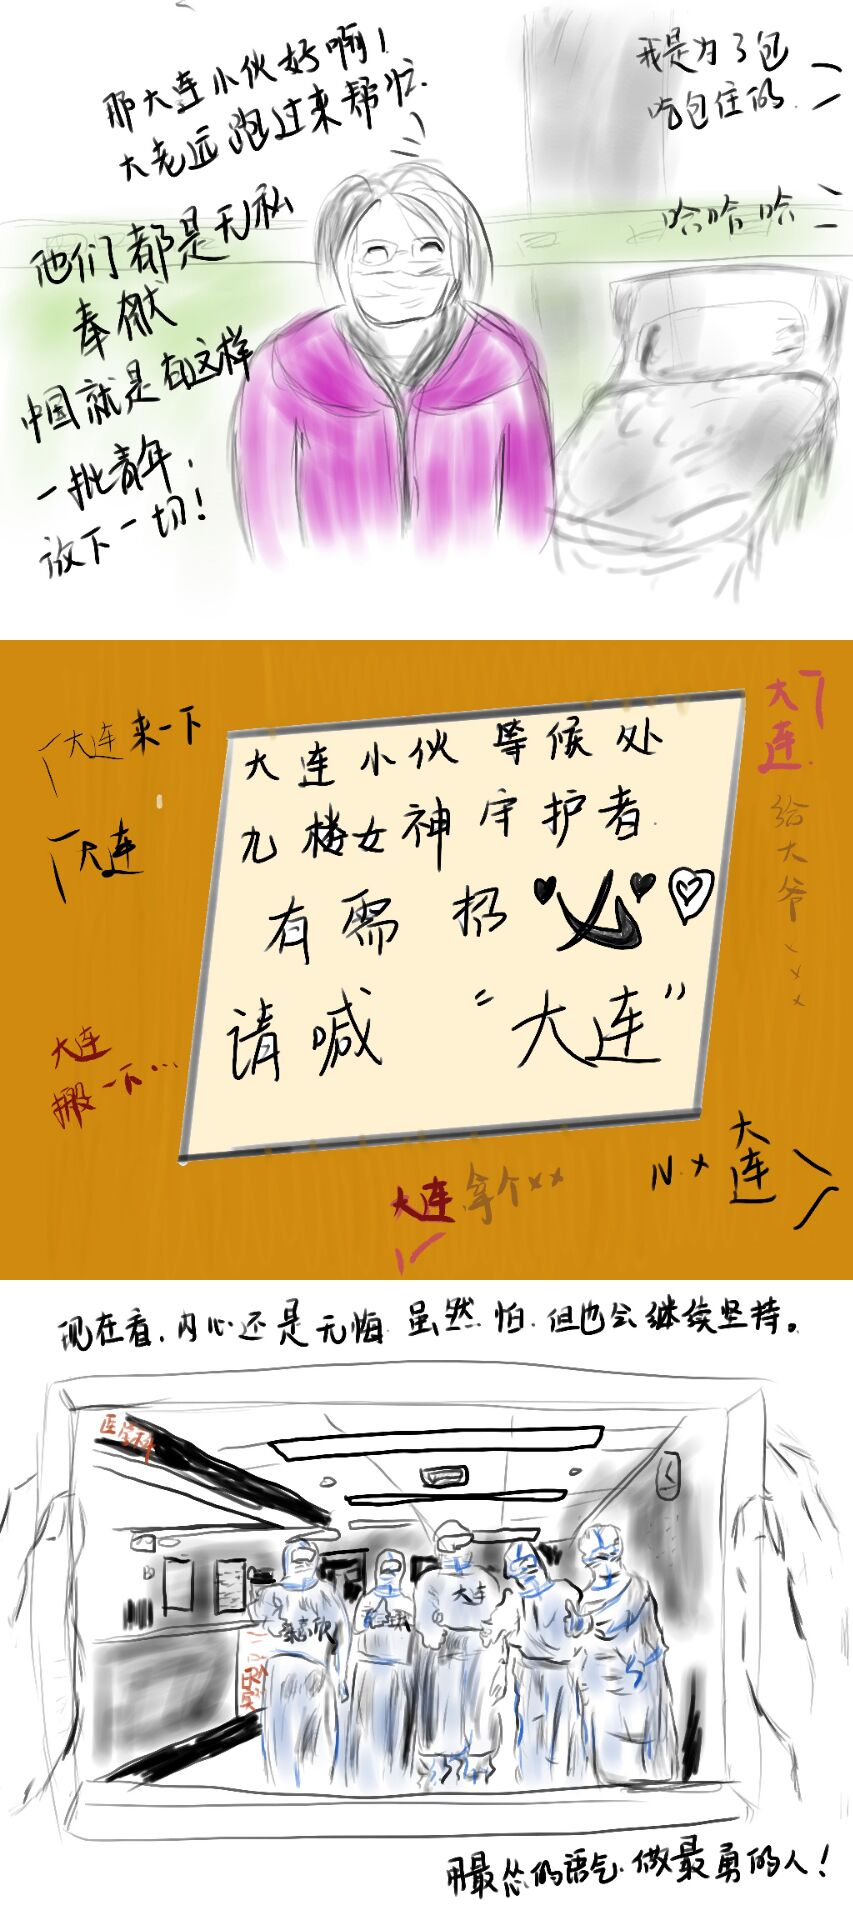 那大连小伙好啊！
大老远跑过来帮忙.
我是为了包
吃包住的
哈哈哈
他们都是无私
奉献
中国就是有这样
一批青年，
放下一切！
大连来一下
大连
大连小伙等候处
九楼女神守护者
有需招
请喊“大连”
大连
给大爷×××
大连
搬一下…
大连拿个××
N.×大连
现在看，内心还是无悔 虽然怕.但也会继续坚持。
大连
用最怂的语气.做最勇的人！